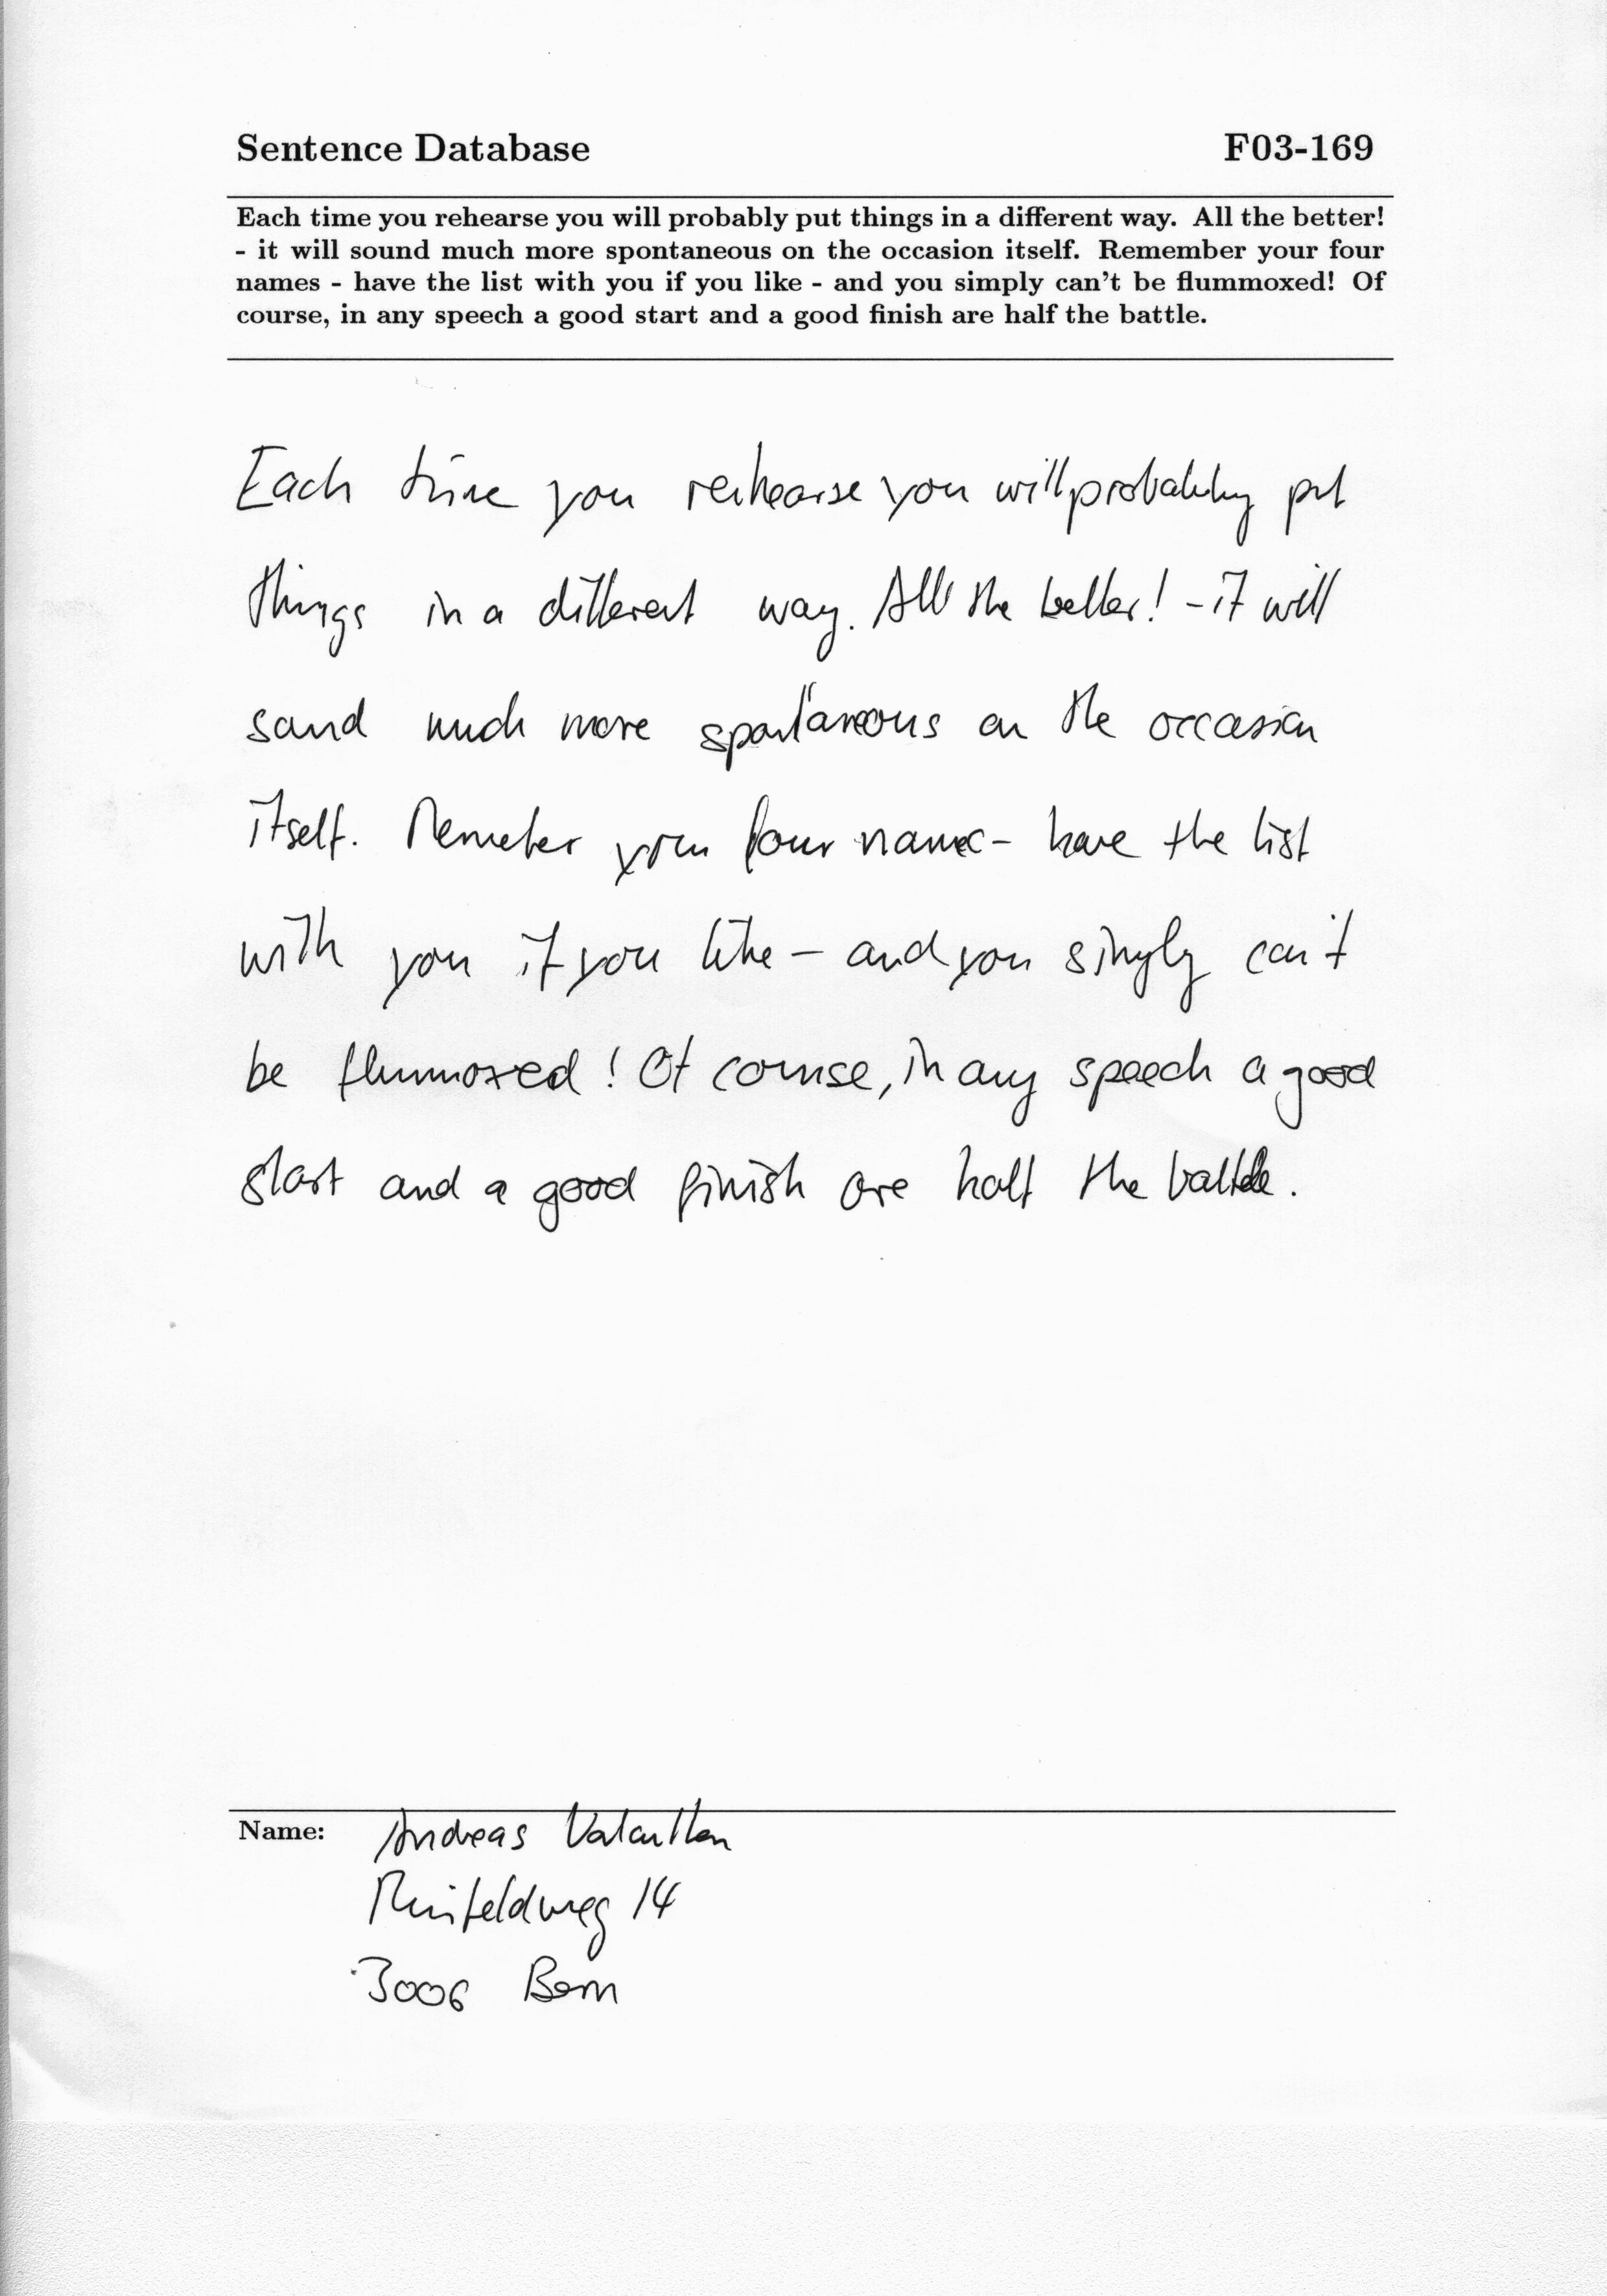 Sentence Database F03-169
Each time you rehearse you will probably put things in a different way. All the better!
- it will sound much more spontaneous on the occasion itself. Remember your four
names - have the list with you if you like - and you simply can't be flummoxed! Of
course, in any speech a good start and a good finish are half the battle.
Each time you rehearse you will probably put
things in a different way. All the better! - it will
sound much more spontaneous on the occasion
itself. Remember your four names - have the list
with you if you like - and you simply can't
be flummoxed! Of course, in any speech a good
start and a good finish are half the battle.
Name: Andreas
14
3006 Bern